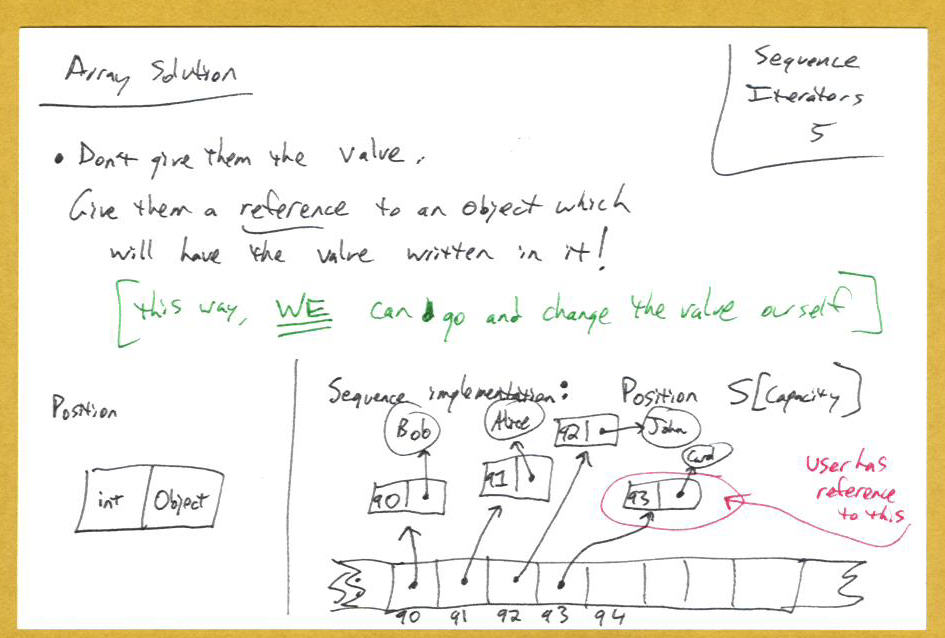 Array Solution
Sequence
Iterators
5
• Don't give them the value.
Give them a reference to an object which
will have the value written in it!
[this way, WE can go and change the value ourself]
Position
int Object
Sequence implementation: Position S[Capacity]
Bob Alice John Carol
90 91 92 93
User has
reference
to this
S:
90 91 92 93 94